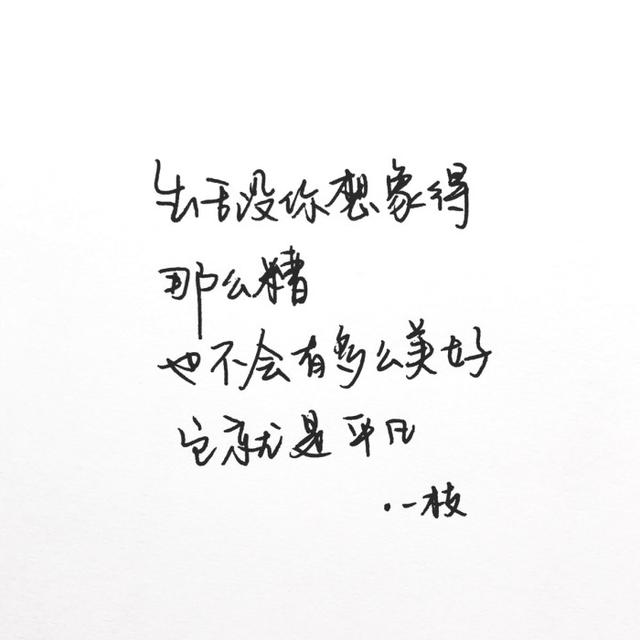 生活没你想象得
那么糟
也不会有多么美好
它就是平凡
·一枝